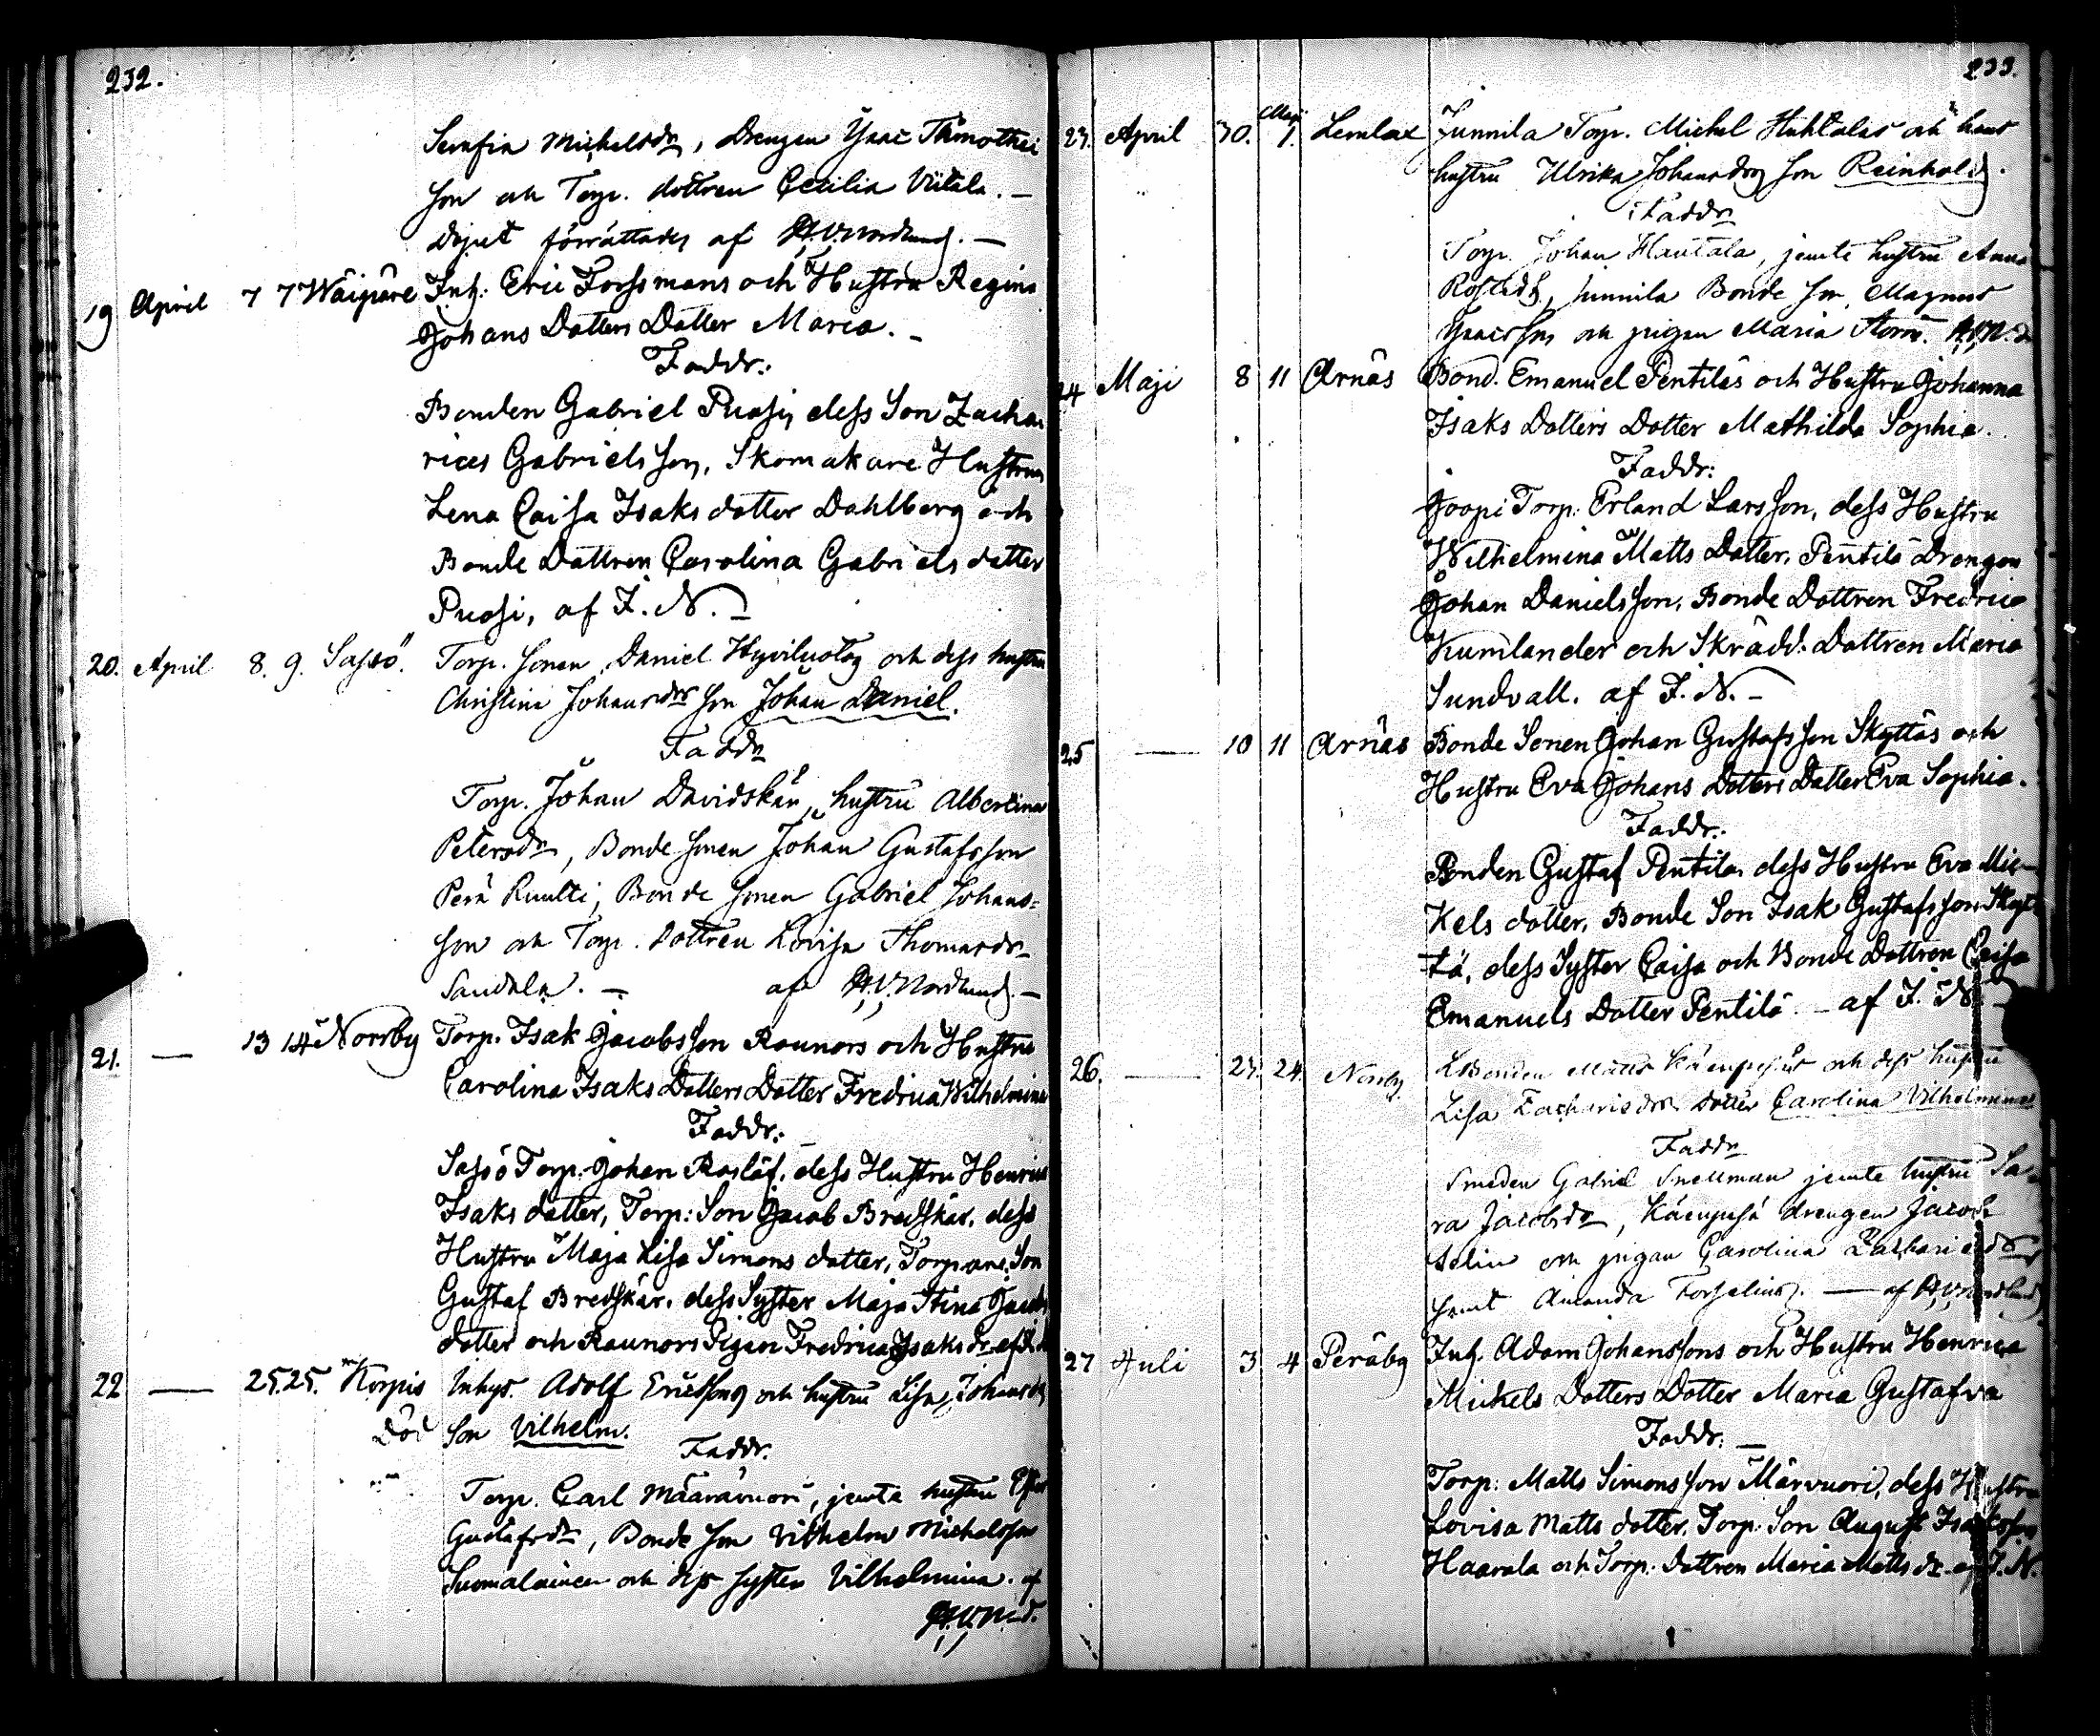 232.
Serafia Michelsdr, Drengen Ysac Thimothei
son och Torp. dottren Cecilia Viitala. —
Döpet förrättades af H.V. Nordlund. —
19 April 7 7 Waipäre Inh: Eric Forssmans och Hustru Regina
Johans Dotters Dotter Maria. —
Faddr:
Bonden Gabriel Puosi, dess Son Zacha-
rias Gabriels son, Skomakare Hustrun
Lena Caisa Isaks dotter Dahlberg och
Bonde Dottren Carolina Gabriels dotter
Puosi, af I. N. —
20. April 8. 9. Sassö. Torp. sonen Daniel Hyviluotos och dess hustru
Christina Johansdrs son Johan Daniel.
Faddr
Torp. Johan Davidskän, hustru Albertina
Petersdr, Bonde sonen Johan Gustafsson
Perä Ruulti, Bonde sonen Gabriel Johans=
son och Torp. dottren Lovisa Thomasdr
Sandala. — af H.V. Nordlund. —
21. — 13 14 Norrby Torp. Isak Jacobsson Raunors och Hustru
Carolina Isaks Dotters Dotter Fredrica Wilhelmina
Faddr:
Sassö Torp. Johan Roslöf, dess Hustru Henrica
Isaks dotter, Torp: Son Jacob Bredskär, dess
Hustru Maja Lisa Simons dotter, Torpare Son
Gustaf Bredskär, dess Syster Maja Stina Jacobs
dotter och Raunors Pigan Fredrica Isaks dr af I. N.
22 — 25. 25. Korpis Inhys. Adolf Ericssons och hustru Lisa Johansdrs
Död son Vilhelm.
Faddr.
Torp. Carl Määrävuori, jemte hustru
Gustafsdr, Bonde son Vilhelm Michelsson
Suomalainen och dess syster Vilhelmina. af
H.V.N-d.
233.
23. April 30. Maji 1. Lemlax Junnila Torp. Michel Huhtalas och hans
hustru Ulrika Johansdrs son Reinhold.
Faddr
Torp. Johan Hautala, jemte hustru Anna
Junnila Bonde son, Magnus
Ysacsson och pigan Maria H.V.N.
24 Maji 8 11 Arnäs Bond. Emanuel Pentiläs och Hustru Johanna
Isaks Dotters Dotter Mathilda Sophia.
Faddr:
Joopi Torp: Erland Larsson, dess Hustru
Wilhelmina Matts Dotter, Pentilä Drengen
Johan Danielsson, Bonde Dottren Fredrica
Kumlander och Skrädd: Dottren Maria
Sundvall. af I. N. —
25 — 10 11 Arnäs Bonde Sonen Johan Gustafsson Skyttäs och
Hustru Eva Johans Dotters Dotter Eva Sophia.
Faddr:
Bonden Gustaf Pentilä, dess Hustru Eva Mic-
kels dotter, Bonde Son Isak Gustafsson Skyt-
tä, dess Syster Caisa och Bonde Dottren Caisa
Emanuels Dotter Pentilä — af I. N. —
26. — 23. 24. Norrby LBonden Matts Kämpes och dess hustru
Lisa Zacharisdrs dotter Carolina Vilhelmina
Faddr
Smeden Gabriel Snellman jemte hustru Sa-
ra Jacobsdr, drengen Jacob
och pigan Carolina Zachariedr
samt Amanda Forselius. — af H.V. Nordlund
27 Juli 3 4 Peräby Inh. Adam Johanssons och Hustru Henrica
Mickels Dotters Dotter Maria Gustafva
Faddr: —
Torp: Matts Simonsson Märvuori, dess Hustru
Lovisa Matts dotter. Torp: Son August Isaksson
Haarala och Torp: Dottren Maria Matts dr. af I. N.